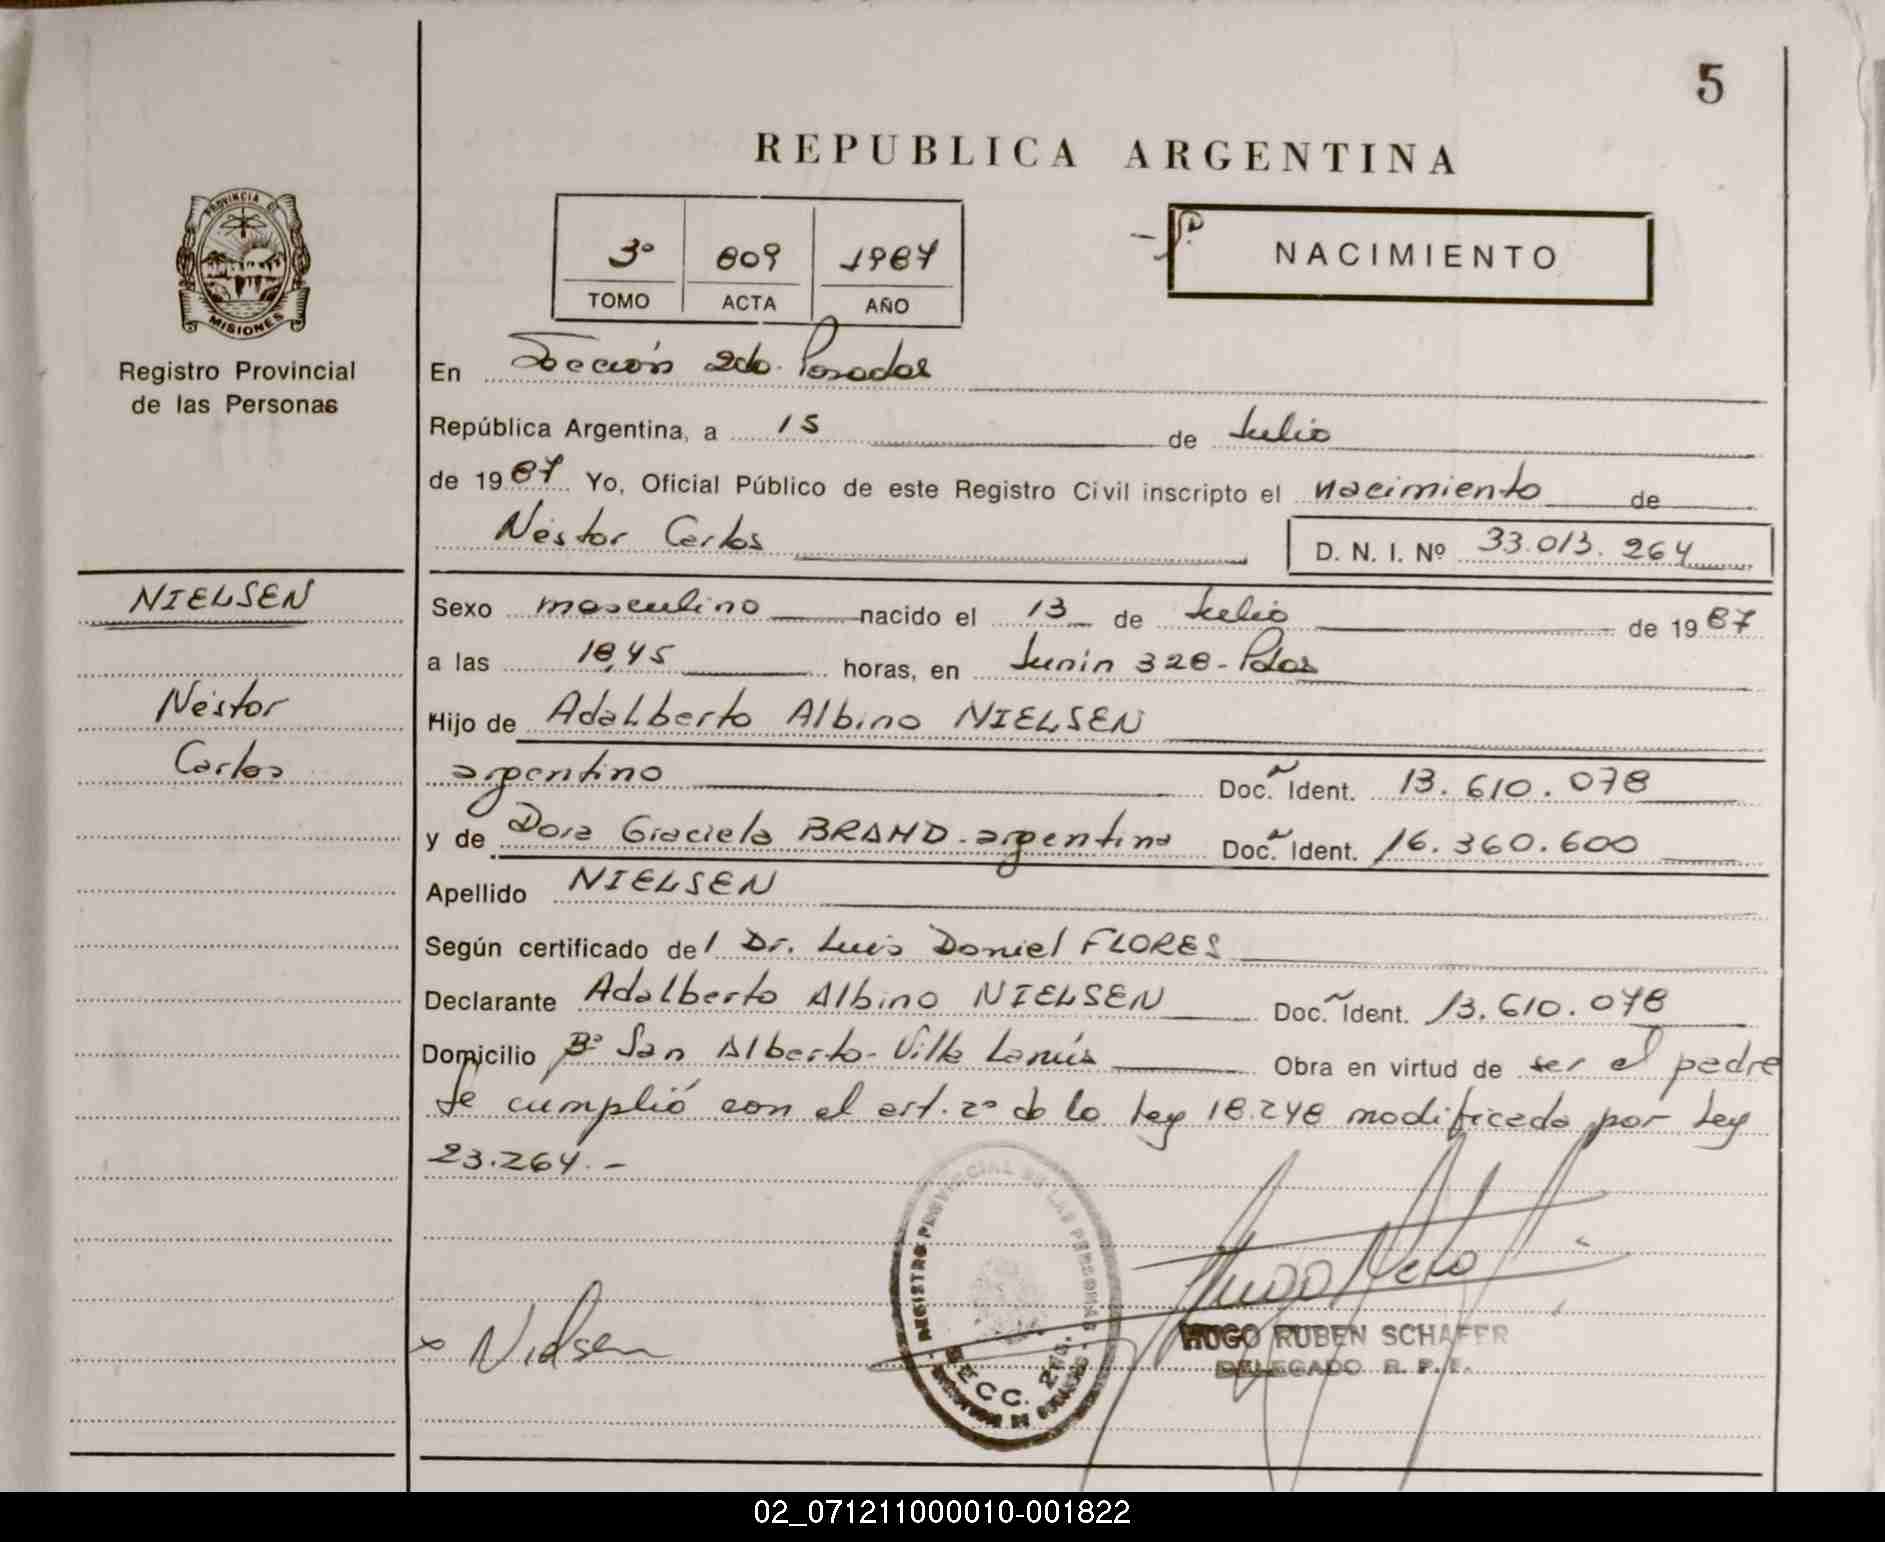 5
REPUBLICA ARGENTINA
3º 809 1987
TOMO ACTA AÑO
NACIMIENTO
PROVINCIA DE
MISIONES
Registro Provincial
de las Personas
En Sección 2da. Posadas
República Argentina, a 15 de Julio
de 1987 Yo, Oficial Público de este Registro Civil inscripto el nacimiento de
Néstor Carlos D. N. I. Nº 33.013.264
NIELSEN
Néstor
Carlos
Sexo masculino nacido el 13 de Julio de 1987
a las 18,45 horas, en Junín 328 - Pdas
Hijo de Adalberto Albino NIELSEN
argentino Doc. Ident. 13.610.078
y de Dora Graciela BRAND - argentina Doc. Ident. 16.360.600
Apellido NIELSEN
Según certificado del Dr. Luis Daniel FLORES
Declarante Adalberto Albino NIELSEN Doc. Ident. 13.610.078
Domicilio Bº San Alberto - Villa Lanús Obra en virtud de ser el padre
Se cumplió con el art. 2º de la Ley 18.248 modificada por Ley
23.264.-
REGISTRO PROVINCIAL DE LAS PERSONAS
SECC. 2da.
x Nielsen
HUGO RUBEN SCHAFER
DELEGADO R. P. P.
02_071211000010-001822